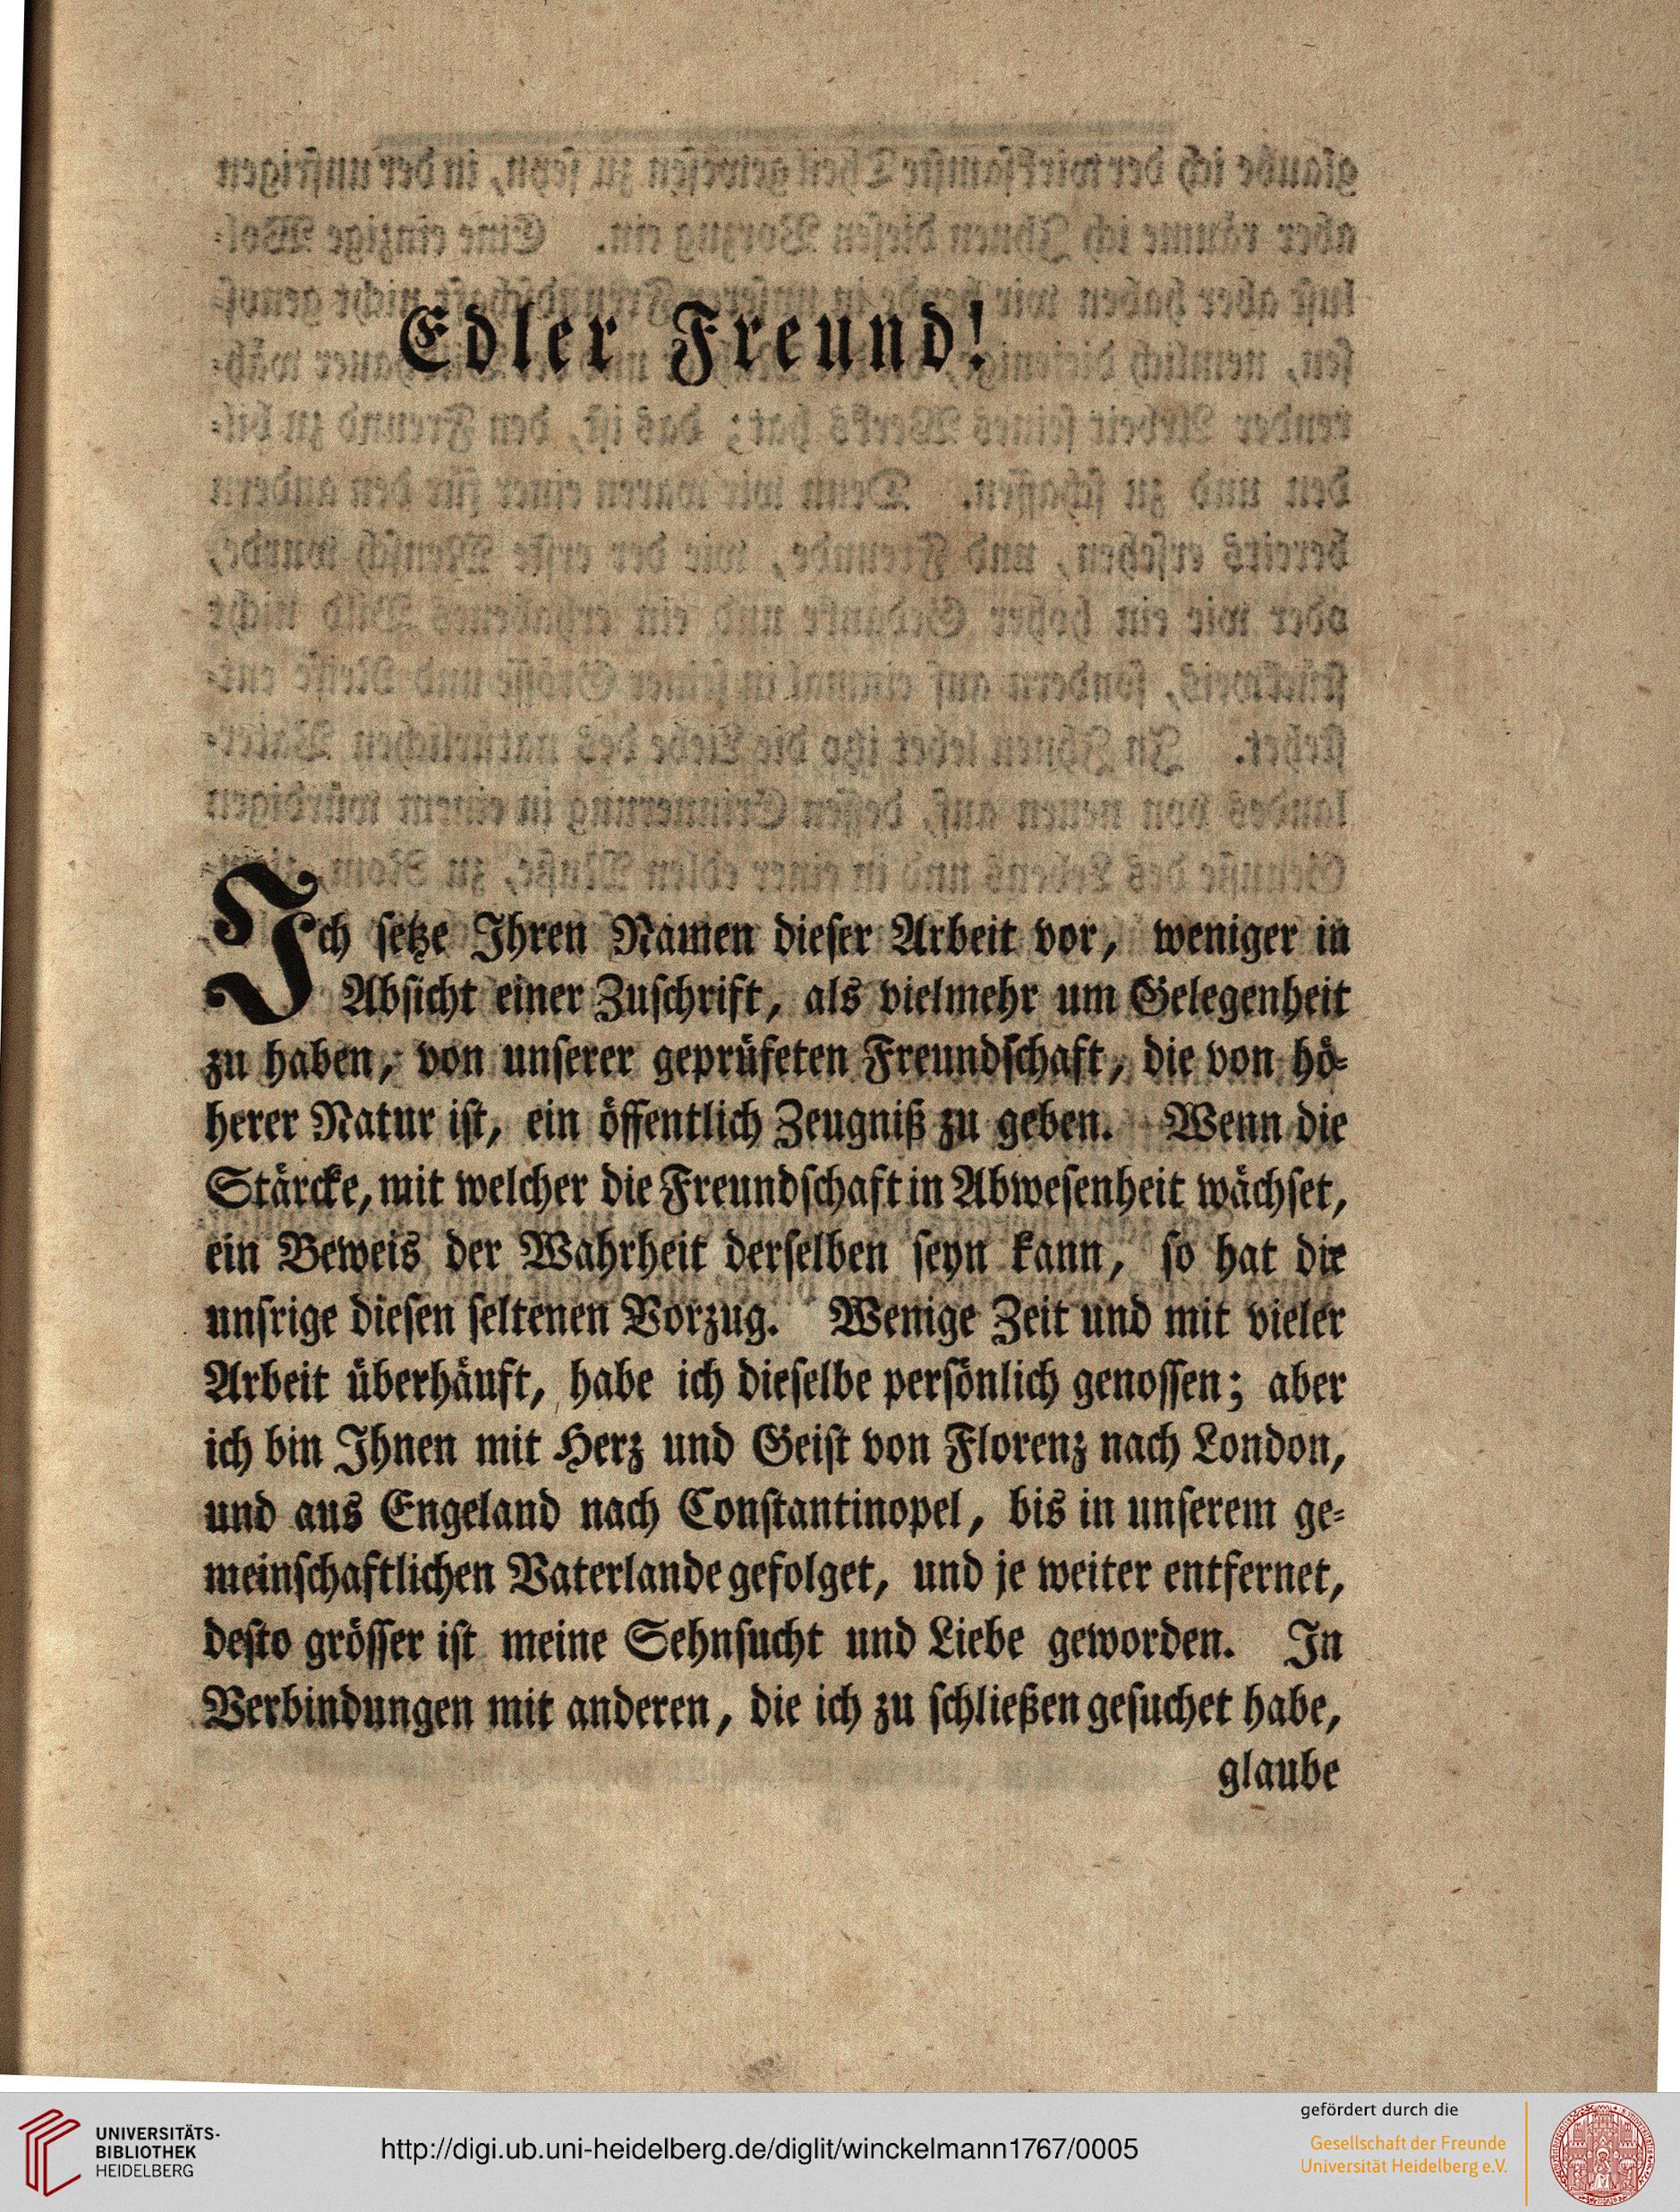 Edler Freund!
Ich setze Ihren Namen dieser Arbeit vor, weniger in
Absicht einer Zuschrift, als vielmehr um Gelegenheit
zu haben, von unserer geprüfeten Freundschaft, die von hö-
herer Natur ist, ein öffentlich Zeugniß zu geben. Wenn die
Stärcke, mit welcher die Freundschaft in Abwesenheit wächset,
ein Beweis der Wahrheit derselben seyn kann, so hat die
unsrige diesen seltenen Vorzug. Wenige Zeit und mit vieler
Arbeit überhäuft, habe ich dieselbe persönlich genossen; aber
ich bin Ihnen mit Herz und Geist von Florenz nach London,
und aus Engeland nach Constantinopel, bis in unserem ge-
meinschaftlichen Vaterlande gefolget, und je weiter entfernet,
desto grösser ist meine Sehnsucht und Liebe geworden. In
Verbindungen mit anderen, die ich zu schließen gesuchet habe,
glaube
UNIVERSITÄTS-
BIBLIOTHEK
HEIDELBERG
http://digi.ub.uni-heidelberg.de/diglit/winckelmann1767/0005
gefördert durch die
Gesellschaft der Freunde
Universität Heidelberg e.V.